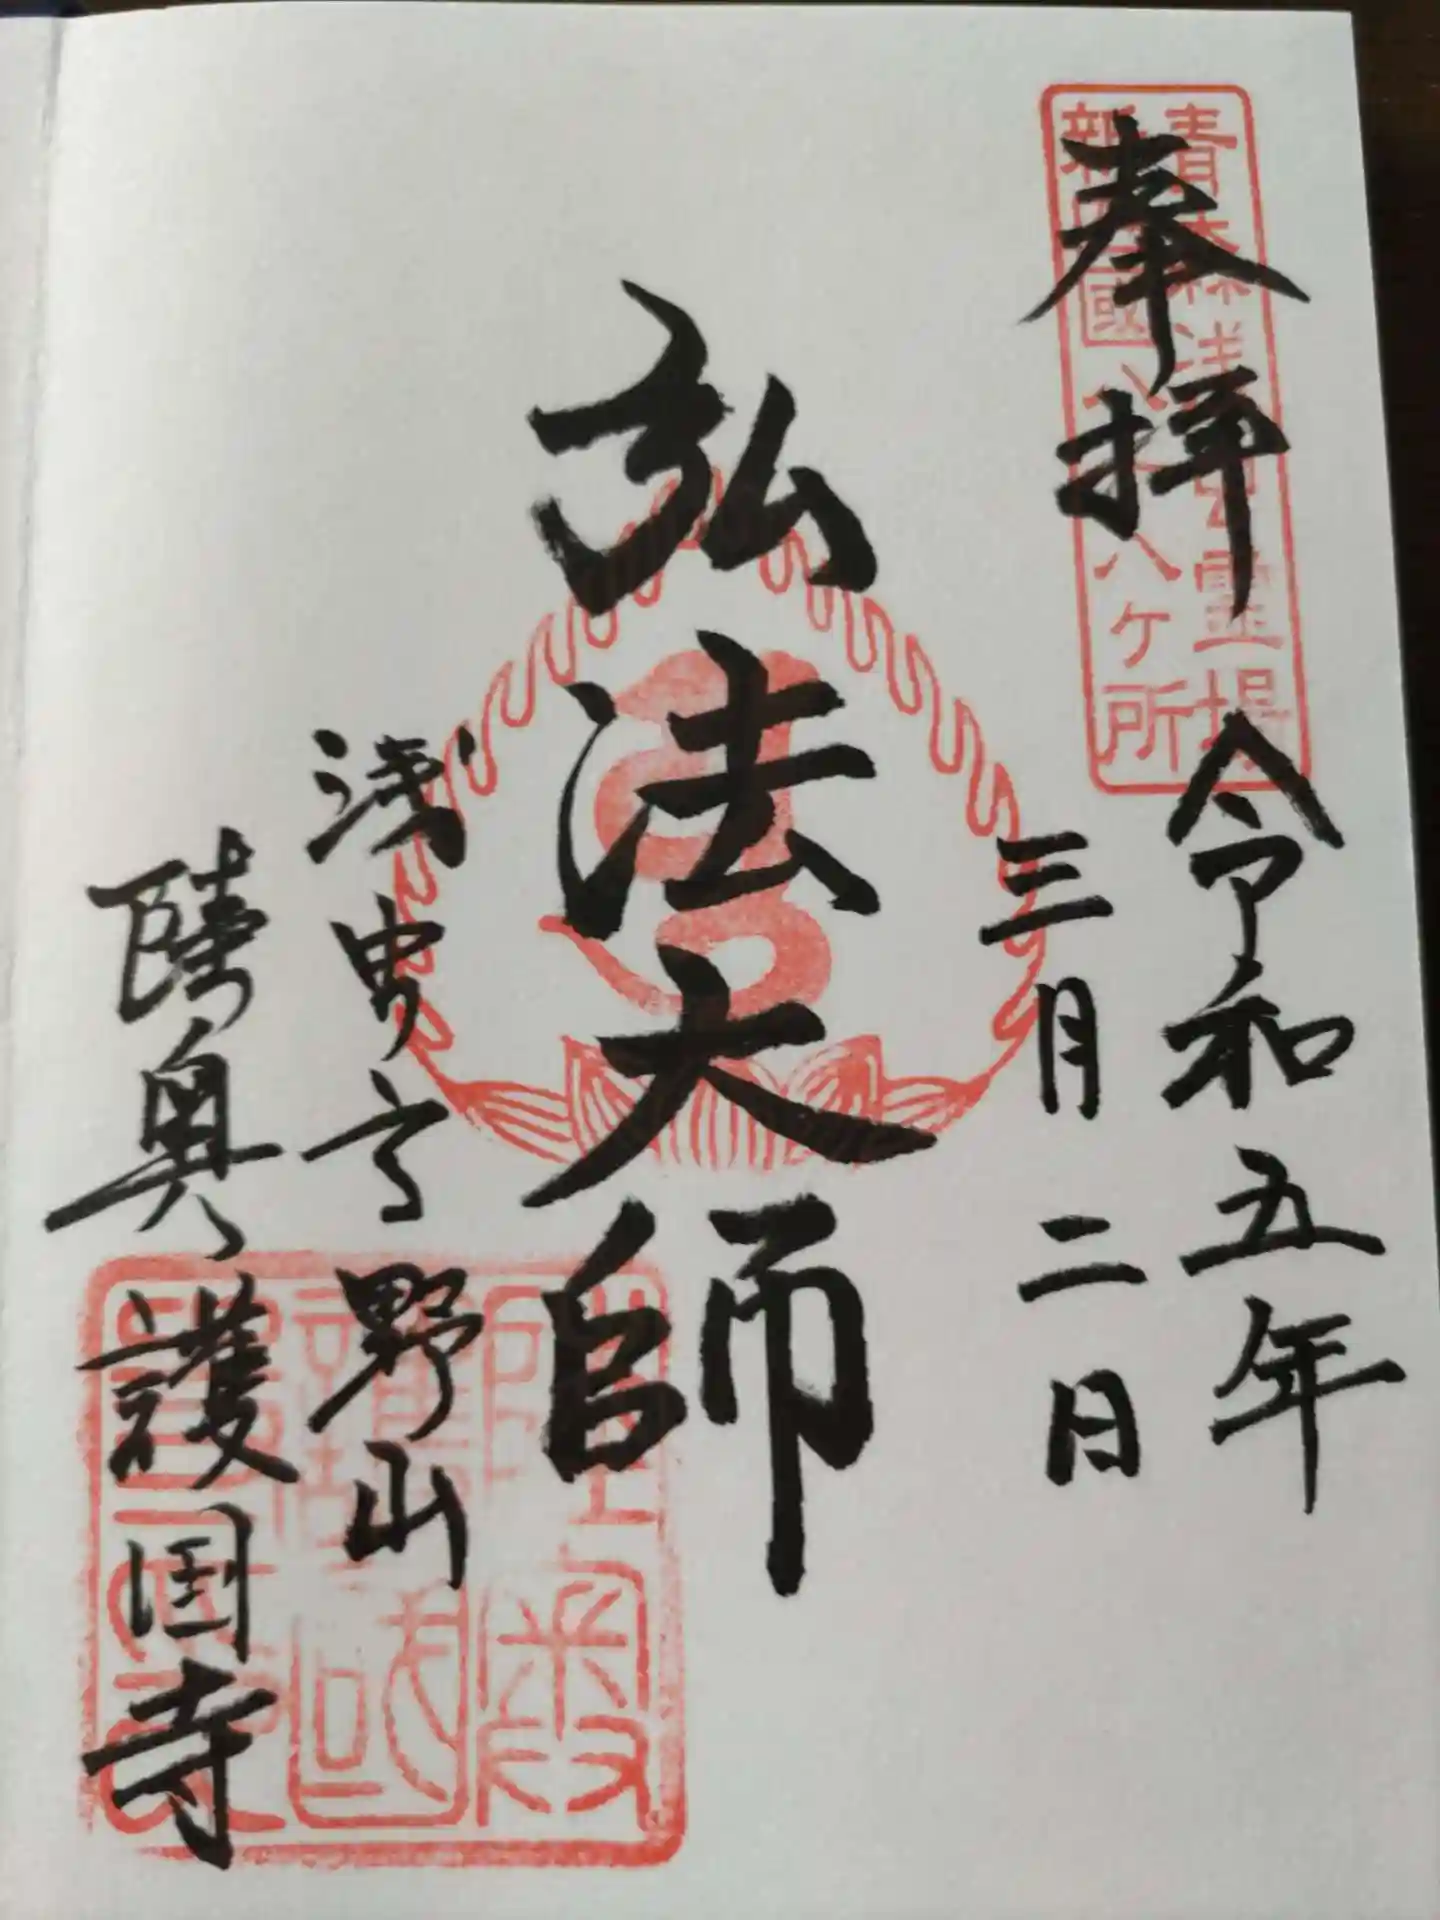 奉拝
令和五年
三月二日
弘法大師
浅虫高野山
陸奥護国寺
青森浅虫霊場
新四國八十八ヶ所